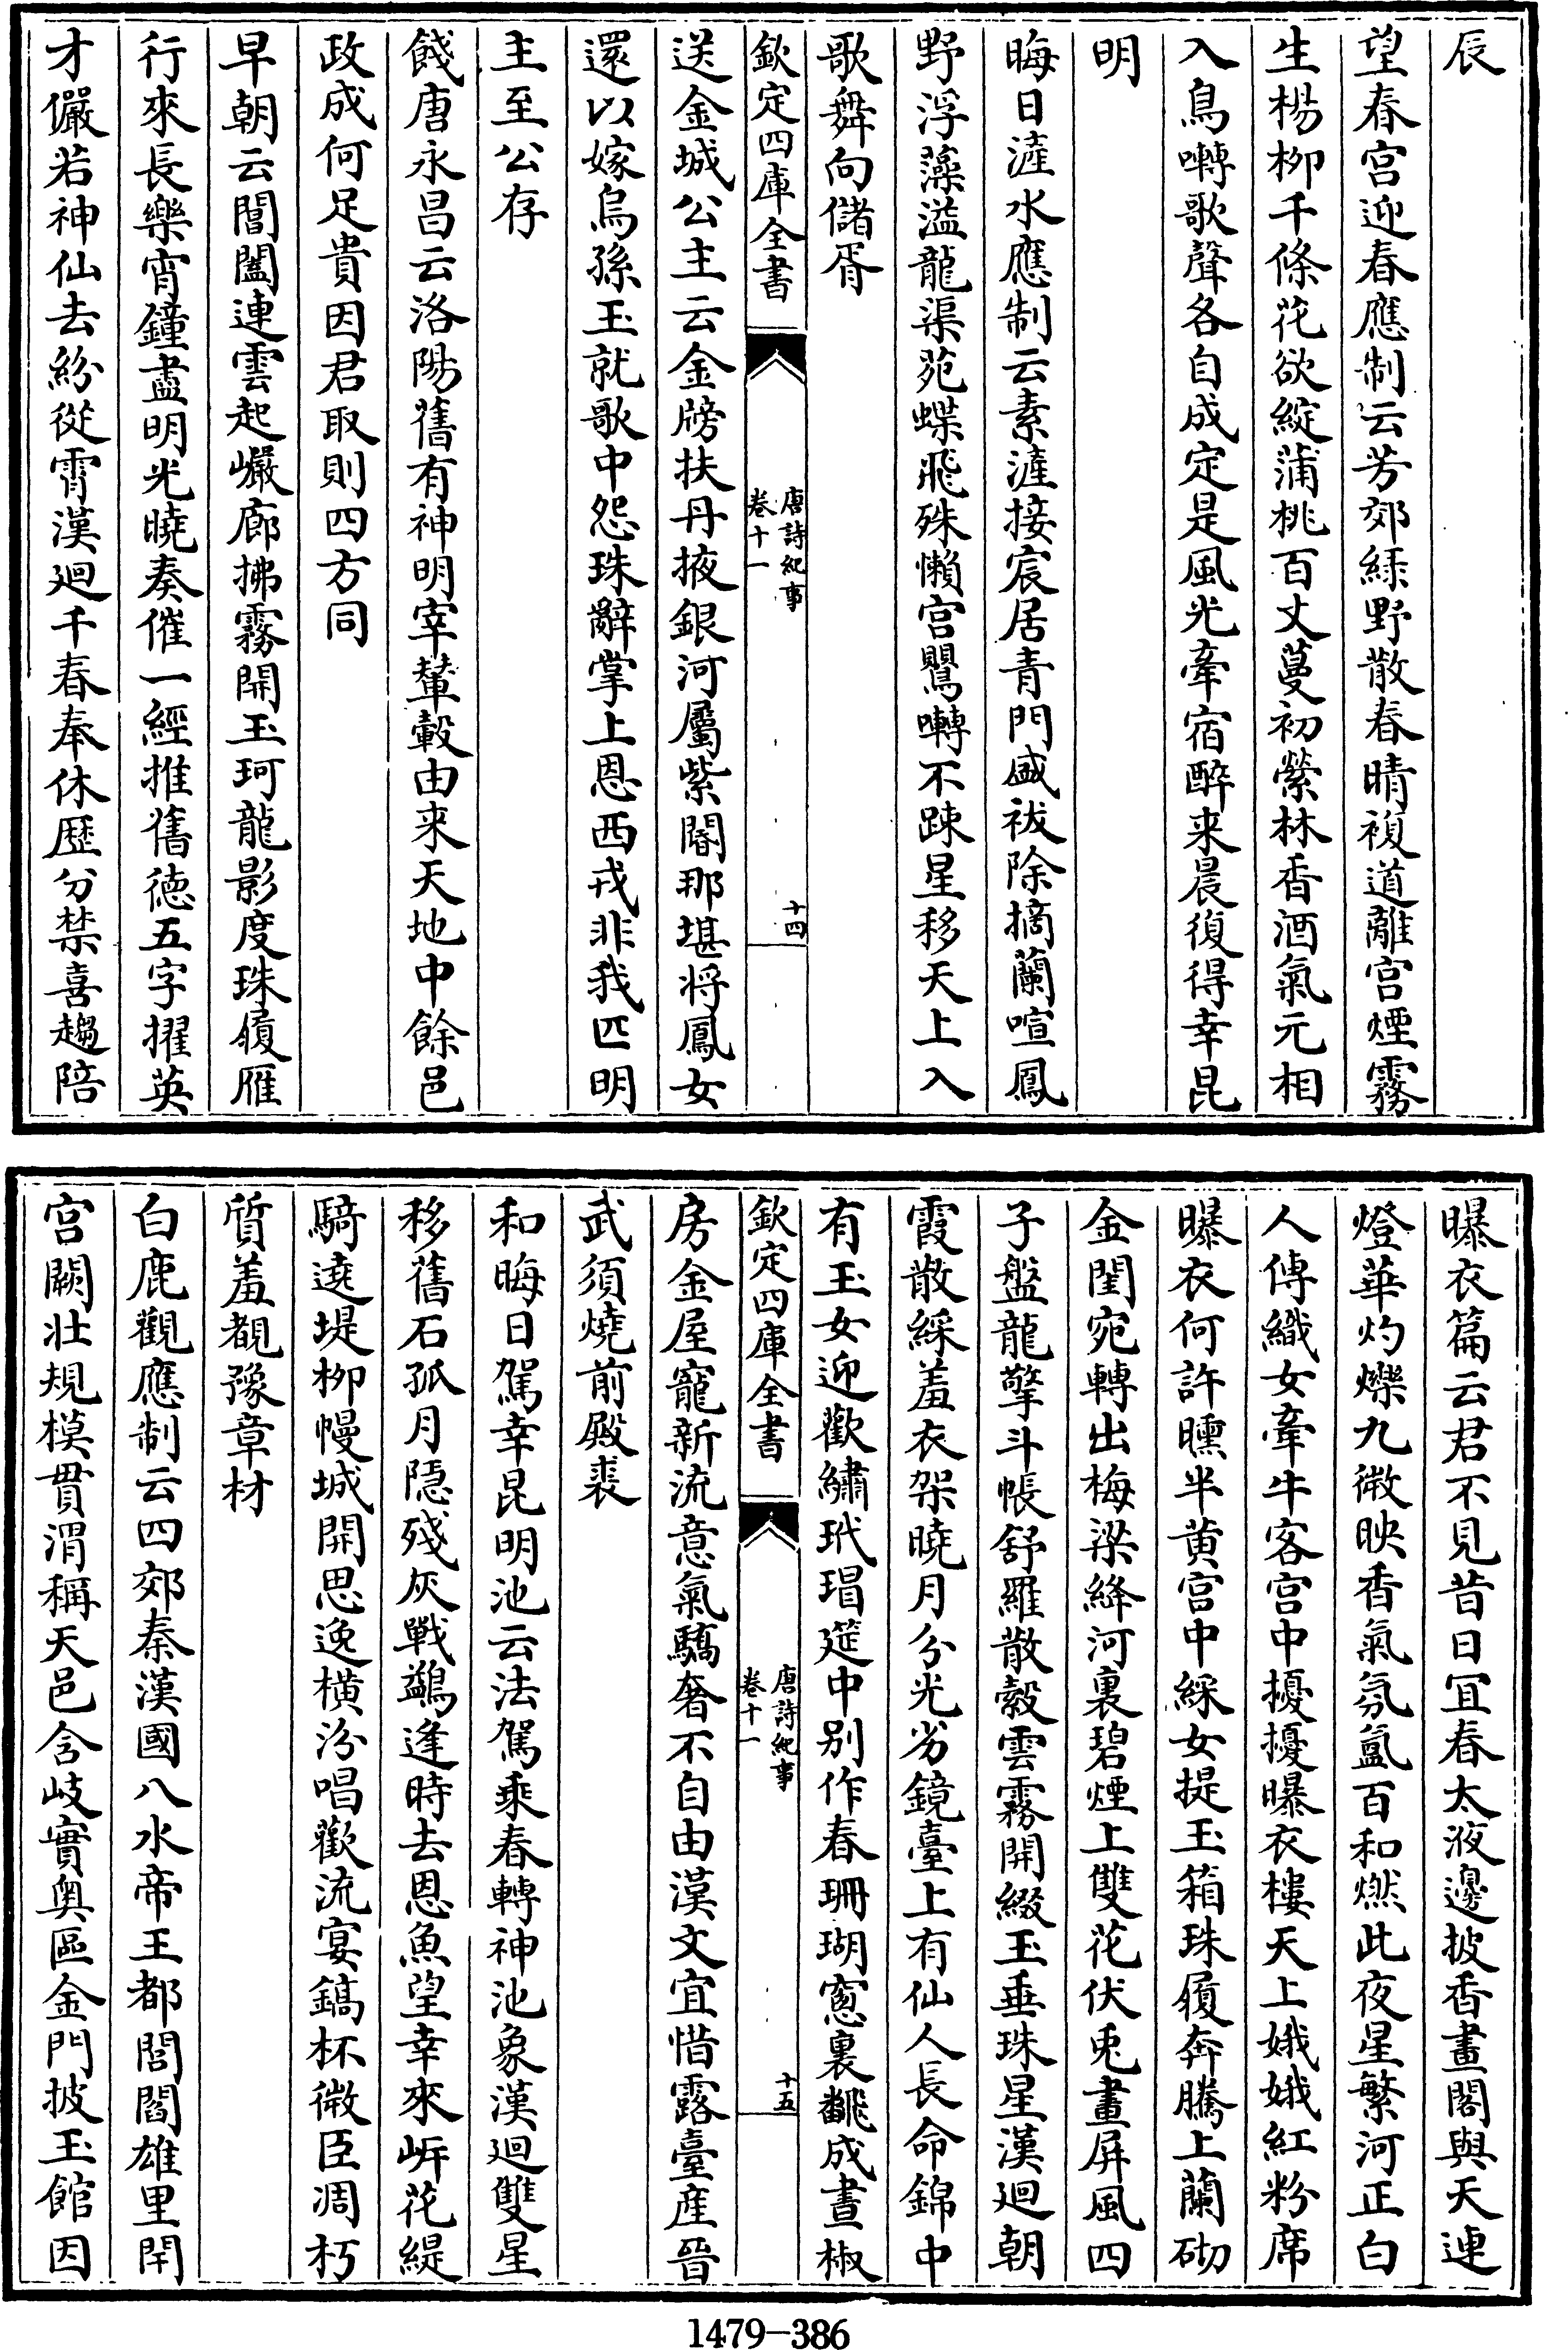 辰
望春宫迎春應制云芳郊緑野散春晴複道離宫煙霧
生楊柳千條花欲綻蒲桃百丈蔓初縈林香酒氣元相
入鳥囀歌聲各自成定是風光牽宿醉来晨復得幸昆
明
晦日滻水應制云素滻接宸居青門盛祓除摘蘭喧鳳
野浮藻溢龍渠苑蝶飛殊懶宫鸎囀不踈星移天上入
歌舞向儲胥
欽定四庫全書
唐詩紀事
卷十一
十四
送金城公主云金牓扶丹掖銀河屬紫閽那堪将鳳女
還以嫁烏孫玉就歌中怨珠辭掌上恩西戎非我匹明
主至公存
餞唐永昌云洛陽舊有神明宰輦轂由来天地中餘邑
政成何足貴因君取則四方同
早朝云閶闔連雲起巖廊拂霧開玉珂龍影度珠履雁
行來長樂宵鐘盡明光曉奏催一經推舊徳五字擢英
才儼若神仙去紛從霄漢廻千春奉休歴分禁喜趨陪
曝衣篇云君不見昔日宜春太液邊披香畫閣與天連
燈華灼爍九微映香氣氛氲百和燃此夜星繁河正白
人傳織女牽牛客宫中擾擾曝衣樓天上娥娥紅粉席
曝衣何許曛半黄宫中綵女提玉箱珠履奔騰上蘭砌
金閨宛轉出梅梁絳河裏碧煙上雙花伏兎畫屏風四
子盤龍擎斗帳舒羅散縠雲霧開綴玉垂珠星漢廻朝
霞散綵羞衣架曉月分光劣鏡臺上有仙人長命錦中
有玉女迎歡繡玳瑁筵中别作春珊瑚窓裏翻成晝椒
欽定四庫全書
唐詩紀事
卷十一
十五
房金屋寵新流意氣驕奢不自由漢文宜惜露臺産晉
武須燒前殿裘
和晦日駕幸昆明池云法駕乘春轉神池象漢廻雙星
移舊石孤月隱殘灰戰鷁逢時去恩魚望幸來岍花緹
騎遶堤柳幔城開思逸横汾唱歡流宴鎬杯微臣凋朽
質羞覩豫章材
白鹿觀應制云四郊秦漢國八水帝王都閶閻雄里閈
宫闕壮規模貫渭稱天邑含岐實奥區金門披玉館因
1479-386